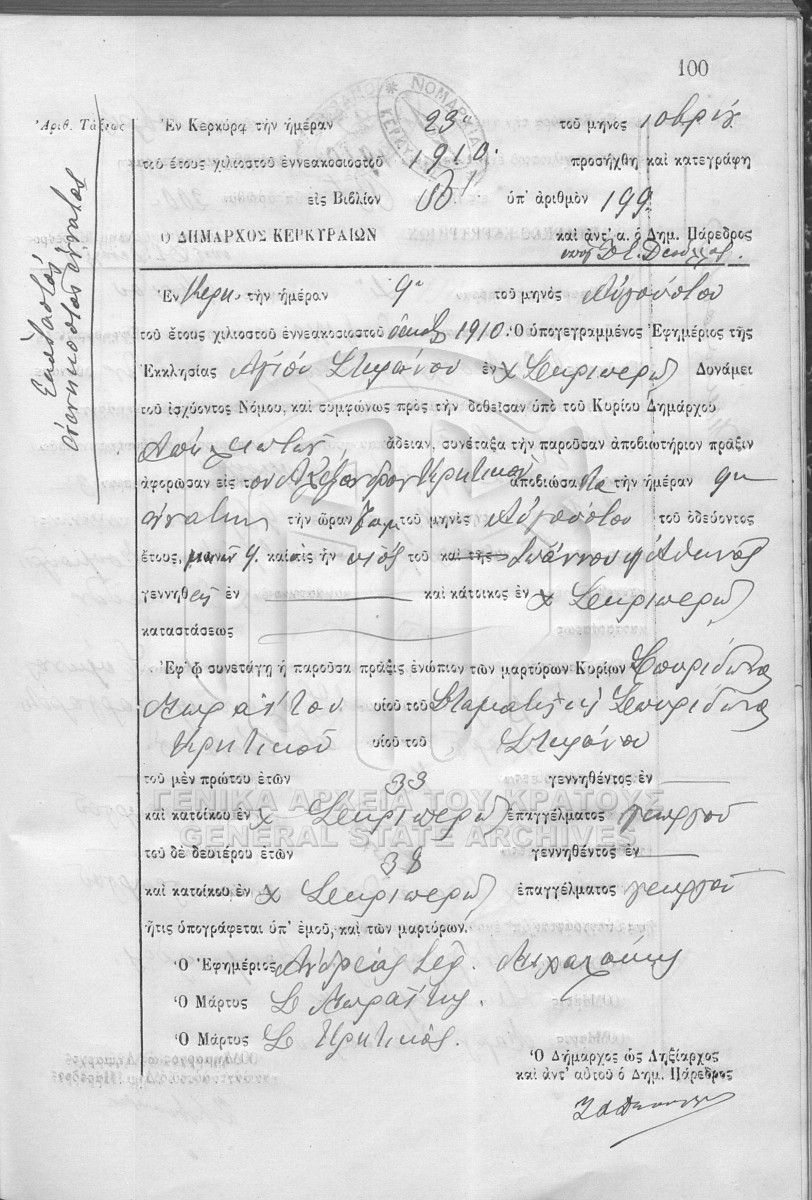 100
Ἀριθ. Τάξεως
Ἑκατοστός
ἐννενηκοστός ἔννατος
ΝΟΜΑΡΧΙΑ
ΚΕΡΚΥΡ
Ἐν Κερκύρᾳ τὴν ἡμέραν 23 τοῦ μηνὸς 10βρίου
τοῦ ἔτους χιλιοστοῦ ἐννεακοσιοστοῦ 1910. προσήχθη καὶ κατεγράφη
εἰς Βιβλίον ὑπ' ἀριθμὸν 199
Ο ΔΗΜΑΡΧΟΣ ΚΕΡΚΥΡΑΙΩΝ καὶ ἀντ' α. ὁ Δημ. Πάρεδρος
Ἐν Κερκ. τὴν ἡμέραν 9η τοῦ μηνὸς Αὐγούστου
τοῦ ἔτους χιλιοστοῦ ἐννεακοσιοστοῦ δεκάτ 1910. Ὁ ὑπογεγραμμένος Ἐφημέριος τῆς
Ἐκκλησίας Ἁγίου Στεφάνου ἐν χ Σκριπερῷ Δυνάμει
τοῦ ἰσχύοντος Νόμου, καὶ συμφώνως πρὸς τὴν δοθεῖσαν ὑπὸ τοῦ Κυρίου Δημάρχου
ἄδειαν, συνέταξα τὴν παροῦσαν ἀποβιωτήριον πρᾶξιν
ἀφορῶσαν εἰς τὸν Ἀλέξανδρον Κρητικὸν ἀποβιώσαντα τὴν ἡμέραν 9ην
ἐννάτην τὴν ὥραν 7 πμ τοῦ μηνὸς Αὐγούστου τοῦ ὁδεύοντος
ἔτους, μηνῶν 9. καὶ ὅστις ἦν υἱὸς τοῦ καὶ τῆς Ἰωάννου καὶ Ἀθηνᾶς
γεννηθεὶς ἐν καὶ κάτοικος ἐν χ Σκριπερῷ
καταστάσεως
Ἐφ' ᾧ συνετάγη ἡ παροῦσα πρᾶξις ἐνώπιον τῶν μαρτύρων Κυρίων Σπυρίδωνα
Μωραΐτου υἱοῦ τοῦ Σταματίου καὶ Σπυρίδωνα
Κρητικοῦ υἱοῦ τοῦ Στεφάνου
τοῦ μὲν πρώτου ἐτῶν 33 γεννηθέντος ἐν
ΓΕΝΙΚΑ ΑΡΧΕΙΑ ΤΟΥ ΚΡΑΤΟΥΣ
καὶ κατοίκου ἐν χ Σκριπερῷ ἐπαγγέλματος γεωργοῦ
GENERAL STATE ARCHIVES
τοῦ δὲ δευτέρου ἐτῶν 38 γεννηθέντος ἐν
καὶ κατοίκου ἐν χ Σκριπερῷ ἐπαγγέλματος γεωργοῦ
ἥτις ὑπογράφεται ὑπ' ἐμοῦ, καὶ τῶν μαρτύρων.
Ὁ Ἐφημέριος Ἀνδρέας Ἱερ.
Ὁ Μάρτυς Σ Μωραΐτης.
Ὁ Μάρτυς Σ Κρητικός.
Ὁ Δήμαρχος ὡς Ληξίαρχος
καὶ ἀντ' αὐτοῦ ὁ Δημ. Πάρεδρος